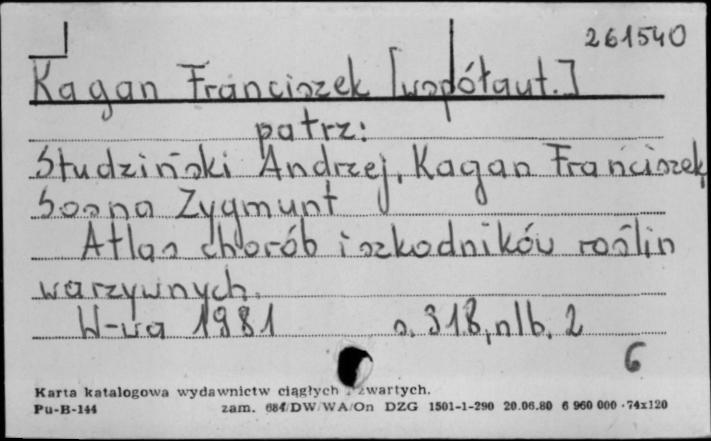 261540
Kagan Franciszek [współaut.]
patrz:
Studziński Andrzej, Kagan Franciszek,
Sosna Zygmunt
Atlas chorób i szkodników roślin
warzywnych.
W-wa 1981 s. 318, nlb. 2
6
Karta katalogowa wydawnictw ciągłych i zwartych.
Pu-B-144 zam. 684/DW/WA/On DZG 1501-1-290 20.06.80 6 960 000 · 74x120